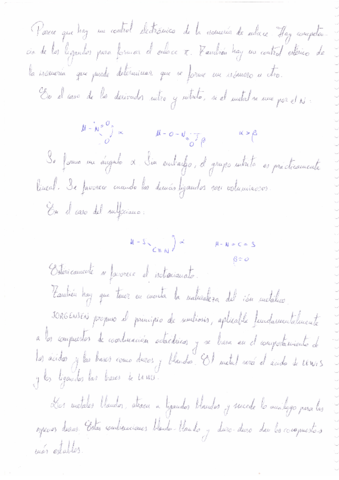 Parece que hay un control electrónico de la isomería de enlace. Hay competen-
cia de los ligandos para formar el enlace π. También hay un control estérico de
la isomería que puede determinar que se forme un isómero u otro.
En el caso de los derivados nitro y nitrito, si el metal se une por el N:
M - N O O α M - O - N O β α > β
Se forma un ángulo α. Sin embargo, el grupo nitrito es prácticamente
lineal. Se favorece cuando los demás ligandos son voluminosos.
En el caso del
M - S C ≡ N α M - N = C = S
β = 0
Estéricamente se favorece el
También hay que tener en cuenta la naturaleza del ión metálico.
JORGENSEN propuso el principio de simbiosis, aplicable fundamentalmente
a los compuestos de coordinación y se basa en el comportamiento de
los ácidos y las bases como duros y blandos. El metal será el ácido de LEWIS
y los ligandos las bases de LEWIS.
Los metales blandos atraen a ligandos blandos y cuando lo para las
especies duras. Estas combinaciones blando-blando y duro-duro dan los compuestos
más estables.